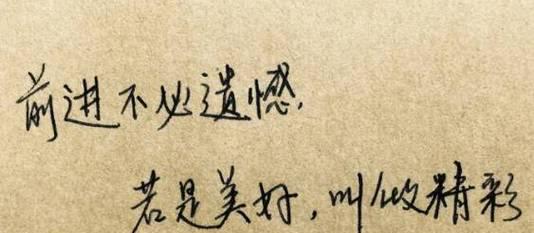 前进不必遗憾.
若是美好，叫做精彩